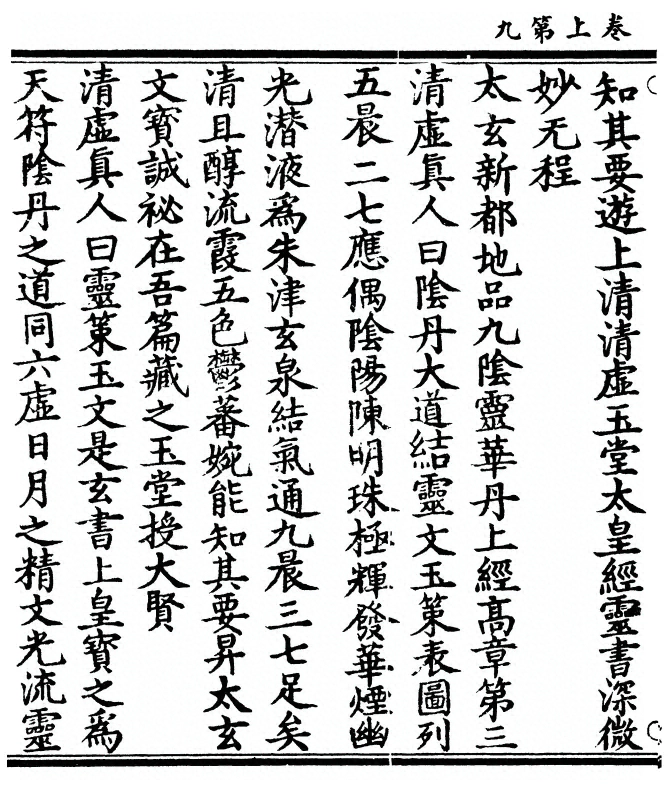 卷上第九
知其要遊上清清虛玉堂太皇經靈書深微
妙无程
太玄新都地品九陰靈華丹上經高章第三
清虛真人曰陰丹大道結靈文玉策表圖列
五晨二七應偶陰陽陳明珠極輝發華煙幽
光潛液爲朱津玄泉結氣通九晨三七足矣
清且醇流霞五色鬱蕃婉能知其要昇太玄
文寶誠祕在吾篇藏之玉堂授大賢
清虛真人曰靈策玉文是玄書上皇寶之爲
天符陰丹之道同六虛日月之精文光流靈